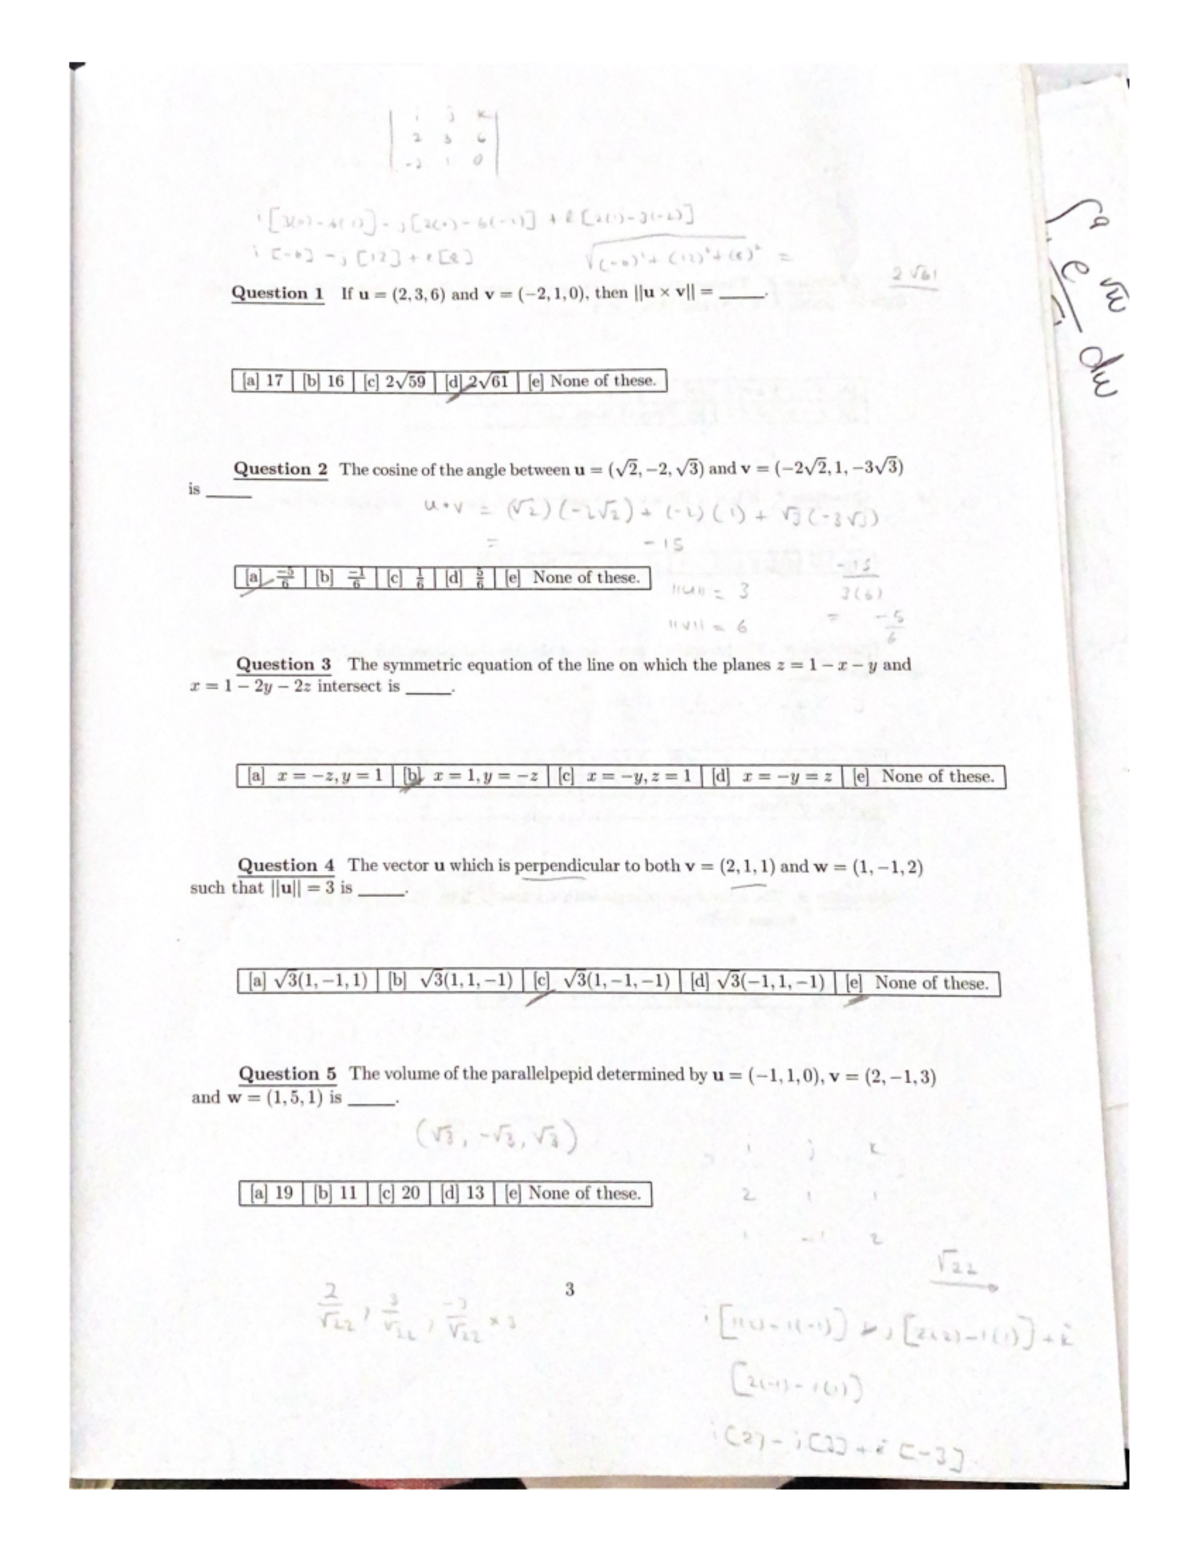 i j k
2 3 6
-2 1 0
i [3(0)-6(1)] - j [2(0)-6(-2)] + k [2(1)-3(-2)]
i [-6] - j [12] + k [8] √(-6)² + (12)² + (8)² =
2√61
Question 1 If u = (2, 3, 6) and v = (−2, 1, 0), then ||u × v|| = _____.
[a] 17 [b] 16 [c] 2√59 [d] 2√61 [e] None of these.
Question 2 The cosine of the angle between u = (√2, −2, √3) and v = (−2√2, 1, −3√3)
is _____
u•v = (√2)(-2√2) + (-2)(1) + √3(-3√3)
= -15
[a] −5/6 [b] −1/6 [c] 1/6 [d] 5/6 [e] None of these.
||u|| = 3
-15/3(6)
||v|| = 6
= -5/6
Question 3 The symmetric equation of the line on which the planes z = 1 − x − y and
x = 1 − 2y − 2z intersect is _____.
[a] x = −z, y = 1 [b] x = 1, y = −z [c] x = −y, z = 1 [d] x = −y = z [e] None of these.
Question 4 The vector u which is perpendicular to both v = (2, 1, 1) and w = (1, −1, 2)
such that ||u|| = 3 is _____.
[a] √3(1, −1, 1) [b] √3(1, 1, −1) [c] √3(1, −1, −1) [d] √3(−1, 1, −1) [e] None of these.
Question 5 The volume of the parallelpepid determined by u = (−1, 1, 0), v = (2, −1, 3)
and w = (1, 5, 1) is _____.
(√3, -√3, √3)
i j k
[a] 19 [b] 11 [c] 20 [d] 13 [e] None of these.
2 1 1
1 -1 2
√22
3
2/√22, 3/√22, -3/√22 × 3
[2(-1)-1(1)]